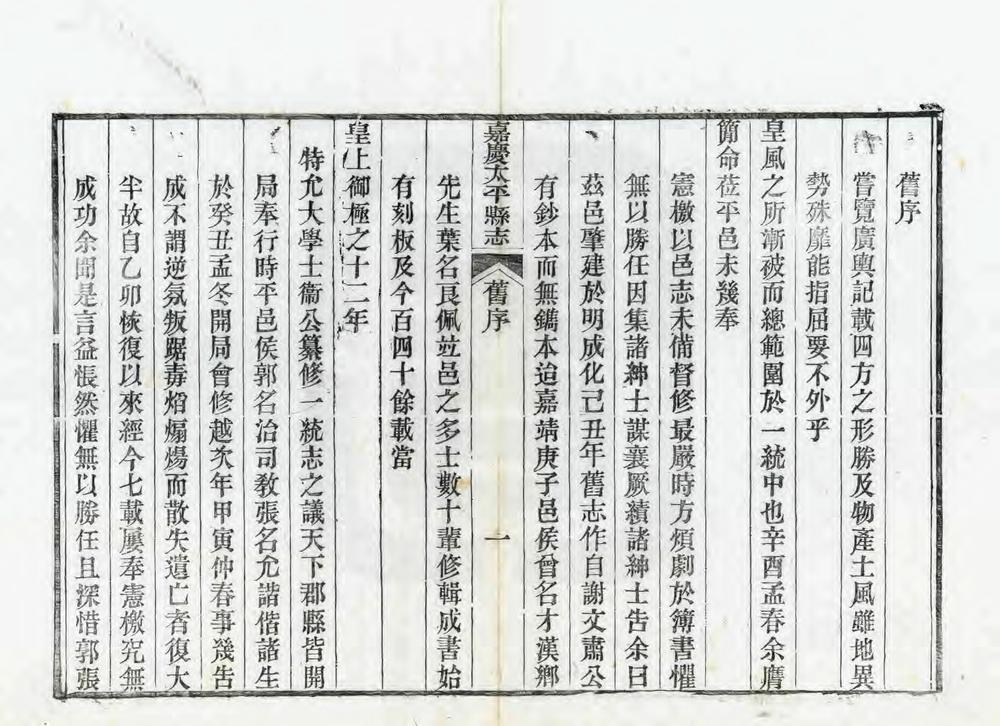 舊序
嘗覽廣輿記載四方之形勝及物產土風雖地異
勢殊靡能指屈要不外乎
皇風之所漸被而總範圍於一統中也辛酉孟春余膺
簡命莅平邑未幾奉
憲檄以邑志未備督修最嚴時方煩劇於簿書懼
無以勝任因集諸紳士謀襄厥績諸紳士告余曰
茲邑肇建於明成化己丑年舊志作自謝文肅公
有鈔本而無鐫本迨嘉靖庚子邑侯曾名才漢鄉
嘉慶太平縣志
舊序
一
先生葉名良佩竝邑之多士數十輩修輯成書始
有刻板及今百四十餘載當
皇上御極之十二年
特允大學士衞公纂修一統志之議天下郡縣皆開
局奉行時平邑侯郭名治司敎張名允諧偕諸生
於癸丑孟冬開局會修越次年甲寅仲春事幾告
成不謂逆氛叛踞毒熖煽煬而散失遺亡者復大
半故自乙卯恢復以來經今七載屢奉憲檄究無
成功余聞是言益悵然懼無以勝任且深惜郭張